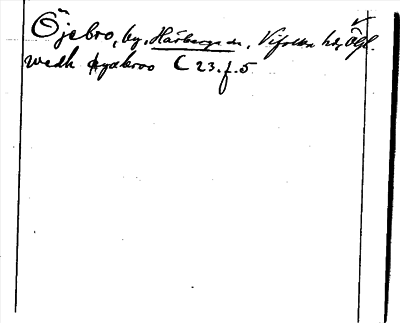 Öjebro, by, Harberga sn, Vifolka hd, Ögl.
wedh øyabroo C 23. f. 5